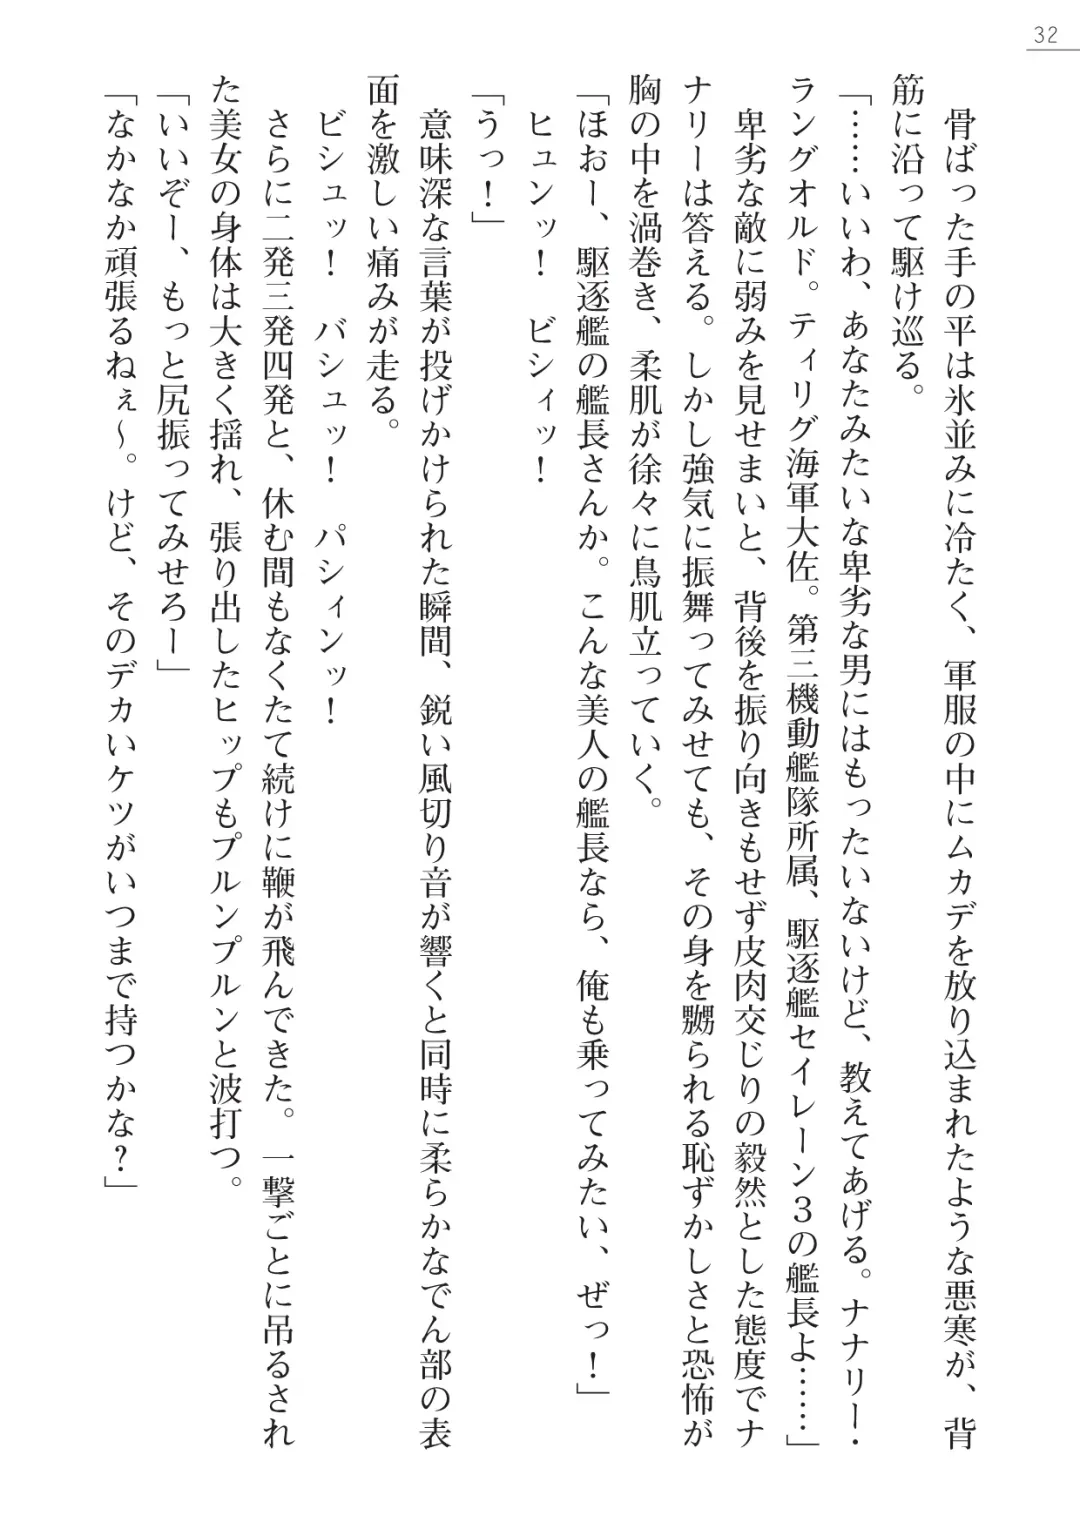 32
　骨ばった手の平は氷並みに冷たく、軍服の中にムカデを放り込まれたような悪寒が、背
筋に沿って駆け巡る。
「……いいわ、あなたみたいな卑劣な男にはもったいないけど、教えてあげる。ナナリー・
ラングオルド。ティリグ海軍大佐。第三機動艦隊所属、駆逐艦セイレーン３の艦長よ……」
　卑劣な敵に弱みを見せまいと、背後を振り向きもせず皮肉交じりの毅然とした態度でナ
ナリーは答える。しかし強気に振舞ってみせても、その身を嬲られる恥ずかしさと恐怖が
胸の中を渦巻き、柔肌が徐々に鳥肌立っていく。
「ほおー、駆逐艦の艦長さんか。こんな美人の艦長なら、俺も乗ってみたい、ぜっ！」
　ヒュンッ！　ビシィッ！
「うっ！」
　意味深な言葉が投げかけられた瞬間、鋭い風切り音が響くと同時に柔らかなでん部の表
面を激しい痛みが走る。
　ビシュッ！　バシュッ！　パシィンッ！
　さらに二発三発四発と、休む間もなくたて続けに鞭が飛んできた。一撃ごとに吊るされ
た美女の身体は大きく揺れ、張り出したヒップもプルンプルンと波打つ。
「いいぞー、もっと尻振ってみせろー」
「なかなか頑張るねぇ～。けど、そのデカいケツがいつまで持つかな？」